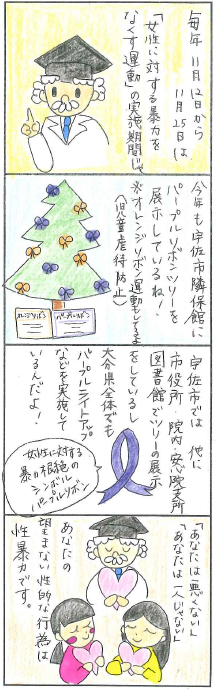 毎年11月12日から
11月25日は
「女性に対する暴力を
なくす運動」の実施期間じゃ
今年も宇佐市隣保館に
パープルリボンツリーを
展示しているね！
※オレンジリボン運動もしてるよ
（児童虐待防止）
オレンジリボン
パープルリボン
宇佐市では他に
市役所・院内・安心院支所
図書館でツリーの展示
をしているし
大分県全体でも
パープルライトアップ
などを実施して
いるんだよ！
女性に対する
暴力根絶の
シンボル
パープルリボン
「あなたは悪くない」
「あなたは一人じゃない」
あなたの
望まない性的な行為は
性暴力です。